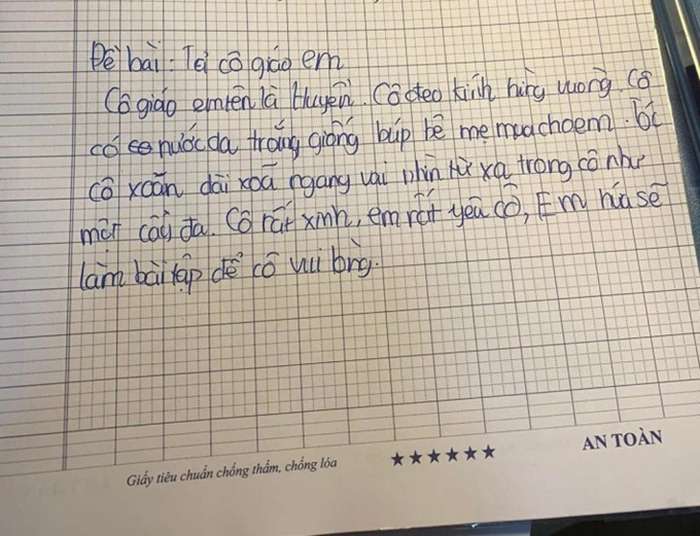 Đề bài: Tả cô giáo em
Cô giáo em tên là Huyền. Cô đeo kính hùng vuông. Cô
có nước da trắng giống búp bê mẹ mua cho em. Tóc
cô xoăn dài xoã ngang vai nhìn từ xa trong cô như
một cây đa. Cô rất xinh, em rất yêu cô, Em hứa sẽ
làm bài tập để cô vui lòng.
Giấy tiêu chuẩn chống thấm, chống lóa
★★★★★★
AN TOÀN